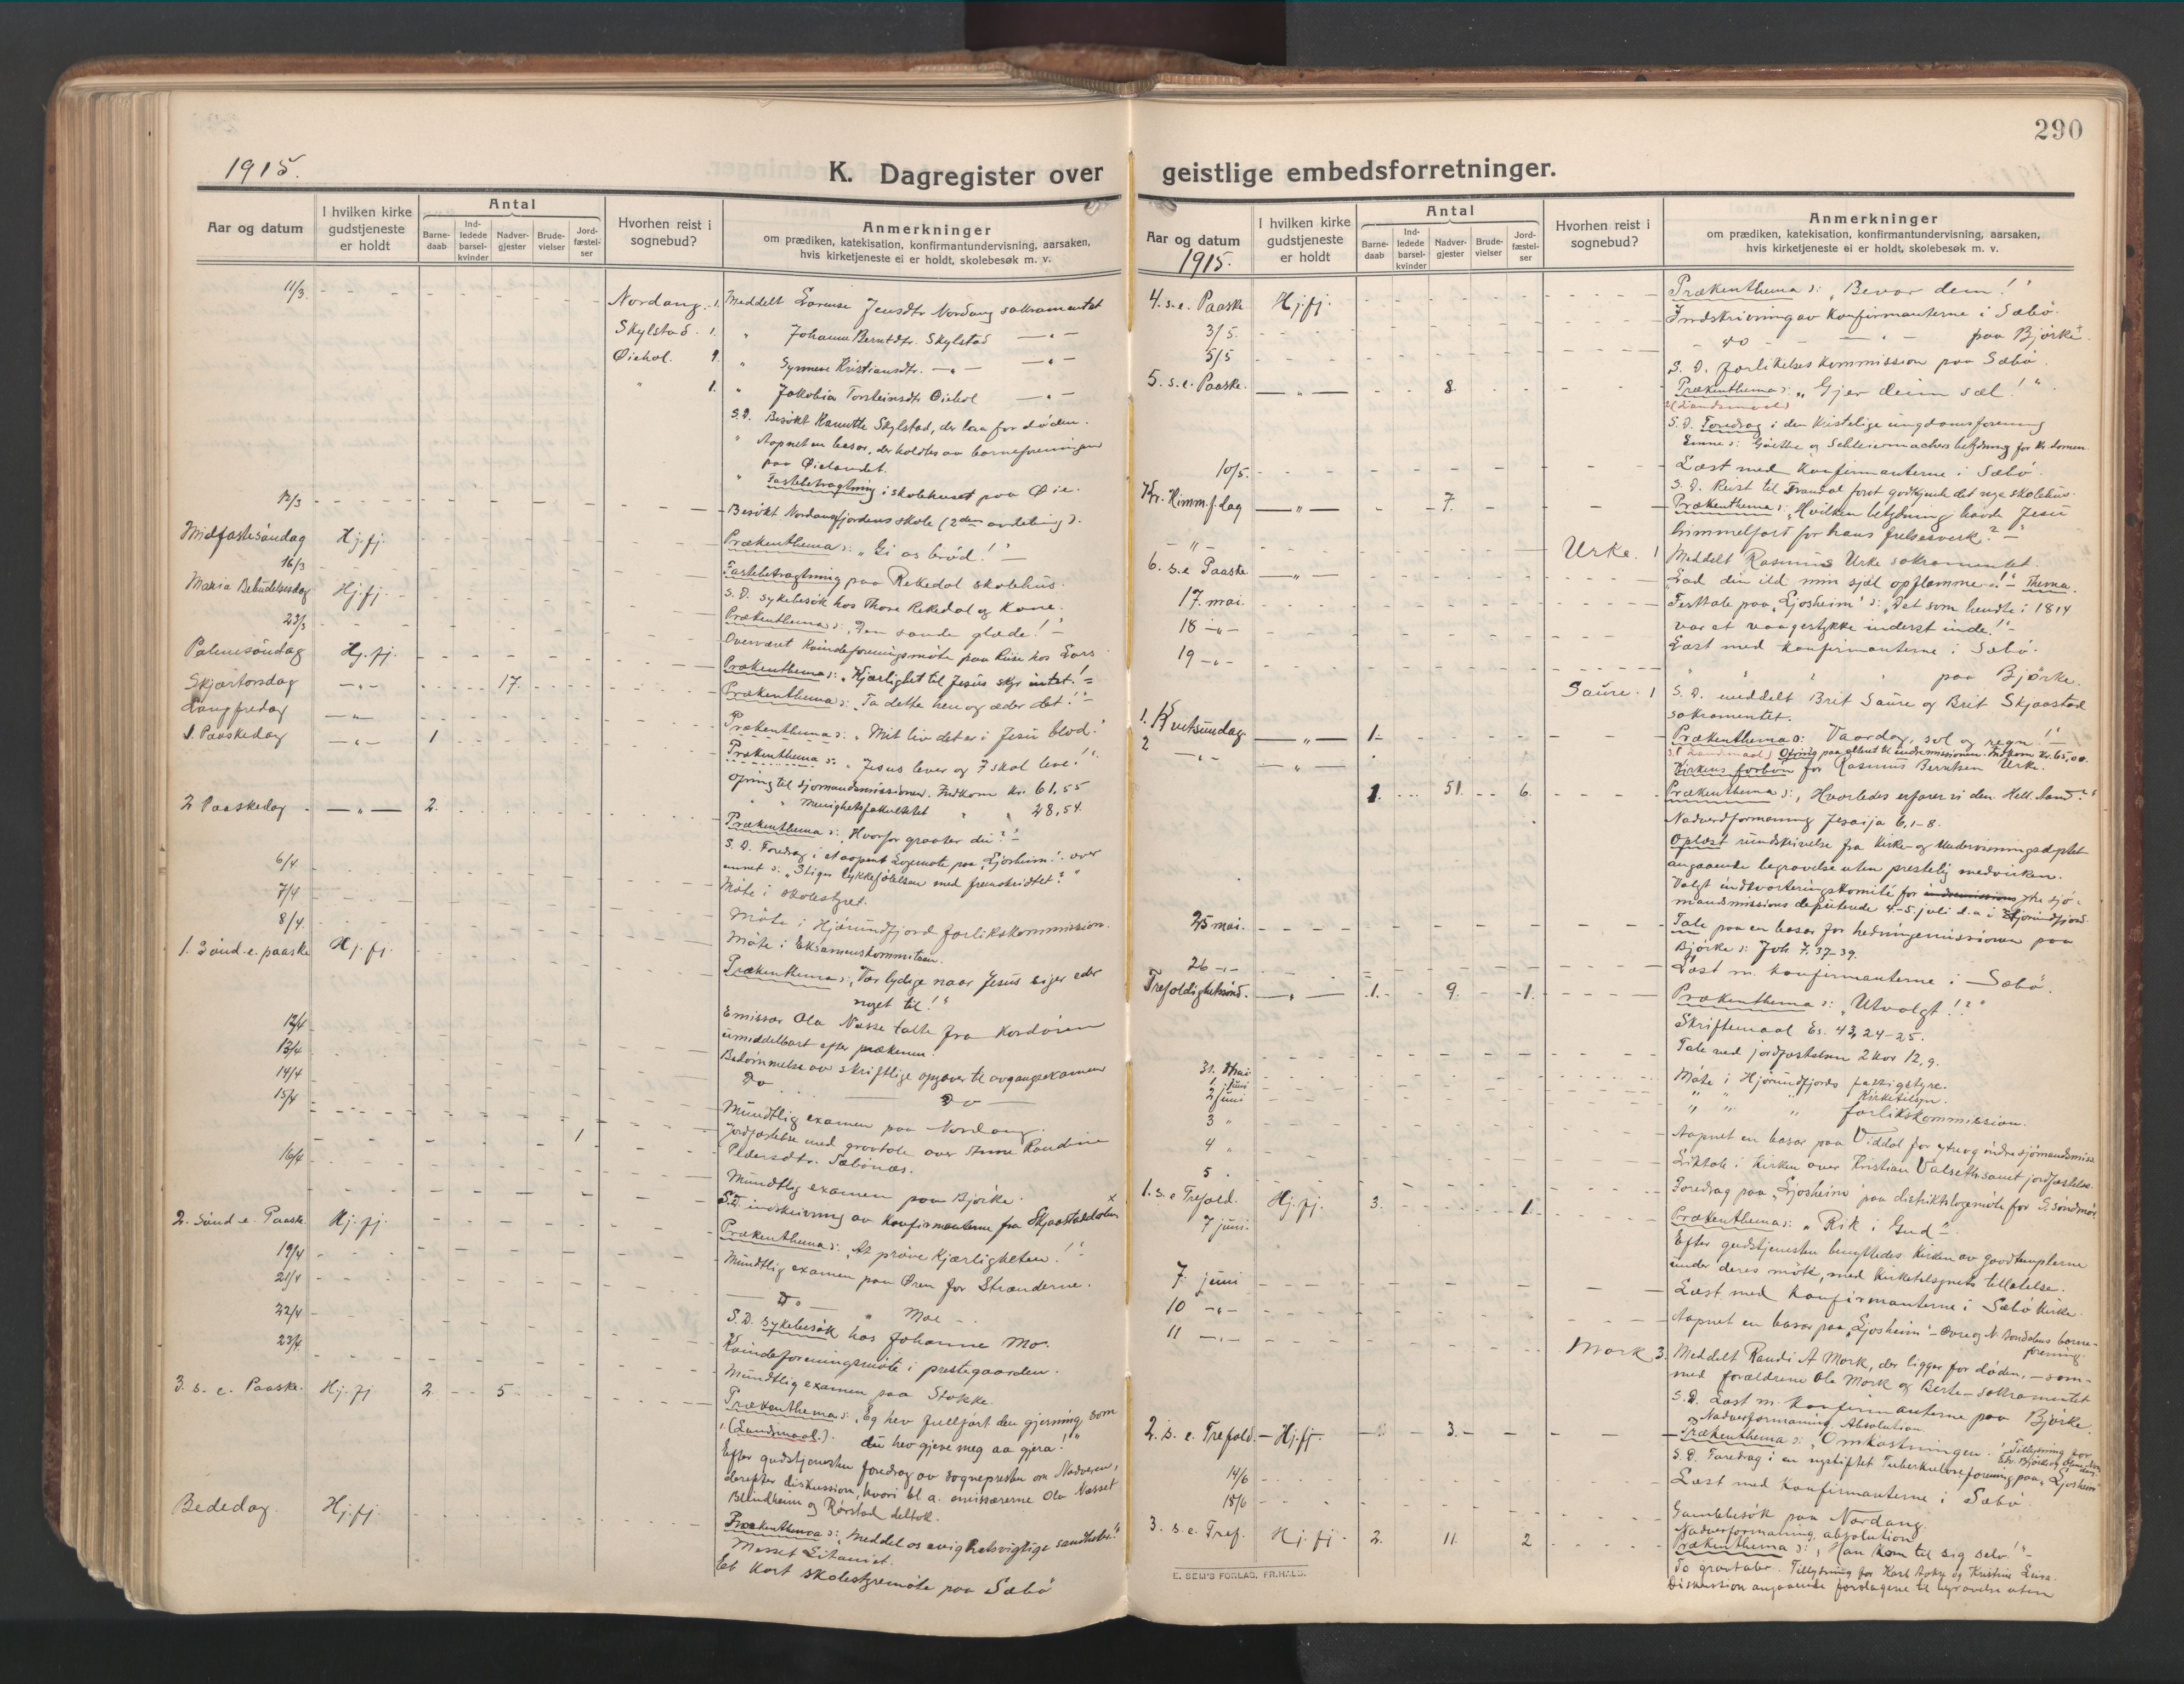 290
1915.
K. Dagregister over geistlige embedsforretninger.
Aar og datum
I hvilken kirke gudstjeneste er holdt
Antal
Barne-daab
Ind-ledede barsel-kvinder
Nadver-gjester
Brude-vielser
Jord-fæstel-ser
Hvorhen reist i sognebud?
Anmerkninger
om prædiken, katekisation, konfirmantundervisning, aarsaken,
hvis kirketjeneste ei er holdt, skolebesøk m. v.
11/3. Nordang. 1. Meddelt Lorense Jensdtr Nordang sakramentet
Skylstad. 1. " Johanna Berntdtr. Skylstad — " —
Øiehol. 1. " Synneve Kristiansdtr. — " — — " —
" 1. " Jakobia Torsteinsdtr Øiehol — " —
S.D. Besøkt Skylstad, der laa for døden.
" Aapnet en basar, der holdtes av barneforeningen
paa Øielandet.
" Fastebetragtning i skolehuset paa Øie.
12/3 Besøkt Nordangfjordens skole (2den avdeling).
Midfastesøndag Hj.fj. Prækenthema: "Gi os brød!"
16/3 Fastebetragtning paa Rekkedal skolehus.
S.D. sykebesøk hos Thore Rekedal og kone.
Maria Bebudelsesdag Hj.fj. Prækenthema: "Den sande glæde!"
23/3 Overværet Kvindeforeningsmøte paa Riise hos Lars
Palmesøndag Hj.fj. Prækenthema: "Kjærlighet til Jesus skyr intet!"
Skjærtorsdag — " — 17. Prækenthema: "Ta dette hen og æder det!"
Langfredag — " — Prækenthema: "Mit liv det er i Jesu blod."
1. Paaskedag — " — 1 Prækenthema: "Jesus lever og I skal leve!"
Ofring til sjømandsmissionen. Indkom kr. 61,55
" " Menighetsfakultetet " " 28,54.
2 Paaskedag — " — 2. Prækenthema: "Hvorfor graater du?"
S.D. Foredrag i et aapent Logemøte paa "Ljosheim". over
emnet: "Stiger lykkefølelsen med fremskridtet?"
6/4 Møte i skolestyret.
7/4 Møte i Hjørundfjord forlikskommission.
8/4 Møte i Eksamenskommiteen.
1. Sønd. e. paaske Hj.fj. Prækenthema: "Vær lydige naar Jesus siger eder
noget til!"
Emissær Ola Næsse talte fra Kordøren
umiddelbart efter prækenen.
12/4 Bedømmelse av skriftlige opgaver til avgangseksamen
13/4 Do — Do —
14/4 Mundtlig examen paa Nordang.
15/4 1 Jordfæstelse med gravtale over Randine
Pedersdtr. Sæbønes.
16/4 Mundtlig examen paa Bjørke.
S.D. indskrivning av Konfirmanterne fra Skjaastaddalen ×
2. Sønd e. Paaske Hj.fj. Prækenthema: "At prøve Kjærligheten!"
19/4 Mundtlig examen paa Øren for Stranderne.
21/4 — Do — " Moe —
S.D. Sykebesøk hos Johanne Mo.
22/4 Kvindeforeningsmøte i prestegaarden.
23/4 Mundtlig examen paa Stokke.
3. s. e. Paaske. Hj.fj 2. 5 Prækenthema: "Eg hev fullført den gjerning, som
(Landsmaal.) du hev gjeve meg aa gjera!"
Efter gudstjenesten foredrag av sognepresten om Nadveren,
derefter diskussion, hvori bl. a. emissærerne Ola Næsset
Blindheim og Rørstad deltok.
Bededag. Hj.fj. Prækenthema: "Meddel os evighetsvigtige sandheter!"
Messet Litaniet.
Et kort skolestyremøte paa Sæbø
Aar og datum
1915.
I hvilken kirke gudstjeneste er holdt
Antal
Barne-daab
Ind-ledede barsel-kvinder
Nadver-gjester
Brude-vielser
Jord-fæstel-ser
Hvorhen reist i sognebud?
Anmerkninger
om prædiken, katekisation, konfirmantundervisning, aarsaken,
hvis kirketjeneste ei er holdt, skolebesøk m. v.
4. s. e. Paaske Hj.fj. Prækenthema: "Bevar dem!"
3/5. Indskrivning av Konfirmanterne i Sæbø.
5/5 — do — " — paa Bjørke.
S.D. Forlikelseskommission paa Sæbø.
5. s. e. Paaske. — " — 8. Prækenthema: "Gjer deim sæl!"
(Landsmaal)
S.D. Foredrag i den Kristelige ungdomsforening
Emne: Goethe og Schleiermachers betydning for Kr.domen.
10/5. Læst med Konfirmanterne i Sæbø.
S.D. Reist til Trandal forat godkjende det nye skolehus.
Kr. Himm.f.dag — " — 7. Prækenthema: "Hvilken betydning havde Jesu
himmelfart for hans frelsesverk?"
— " — Urke. 1 Meddelt Rasmus Urke sakramentet.
6. s. e Paaske — " — "Lad din ild min sjæl opflamme!" Thema.
17. mai. Festtale paa "Ljosheim": "Det som hendte i 1814
var et vaagestykke inderst inde!"
18 — " — Læst med konfirmanterne i Sæbø.
19 — " — " " paa Bjørke.
Saure. 1 S.D. meddelt Brit Saure og Brit Skjaastad
sakramentet.
1. Kvitsundag. — " — 1. Prækenthema: Vaardag, sol og regn!"
(Landsmaal) Ofring paa alteret til indremissionen. Indkom kr. 65,00.
Kirkens forbøn for Rasmus Berntsen Urke.
2 — " — — " — 1. 51. 6. Prækenthema: "Hvorledes erfarer vi den Hell. Aand?"
Nadverdformaning Jesaija 6, 1-8.
Oplæst rundskrivelse fra Kirke- og Undervisningsdeptet
angaaende begravelse uten prestelig medvirken.
Valgt indkvarteringskomité for sjø-
mandsmissions deputerede 4.-5. juli d.a. i Hjørundfjord.
25 mai. Tale paa en basar for hedningemissionen paa
Bjørke: Joh 7. 37-39.
26 — " — Læst m. Konfirmanterne i Sæbø.
Trefoldighetssønd. — " — 1. 9. 1. Prækenthema: "Utvalgt!?"
Skriftemaal Es. 43, 24-25.
Tale ved jordfæstelsen 2 Kor 12, 9.
31. Mai Møte i Hjørundfjords fattigstyre.
1. juni " " " Kirketilsyn.
2 juni " " " forlikskommission.
3 " Aapnet en basar paa Viddal for ytre og indre sjømandsmiss.
4 " Liktale i Kirken over Kristian Valseth samt jordfæstelse.
5 . Foredrag paa "Ljosheim" paa distriktslogemøte for S. Søndmør.
1. s. e Trefold. Hj.fj. 3. 1. Prækenthema: "Rik i Gud".
7 juni. Efter gudstjenesten benyttedes Kirken av goodtemplerne
under deres møte, med Kirketilsynets tillatelse.
7. juni Læst med Konfirmanterne i Sæbø Kirke.
10 — " — Aapnet en basar paa "Ljosheim" — Øvre og N. Bondalens barne-
forening.
11 — " — Mork 3. Meddelt Randi A Mork, der ligger for døden, — sam-
med forældrene Ole Mork og Berte — sakramentet
S.D. Læst m. Konfirmanterne paa Bjørke.
Nadverformaning, Absolution
2. s. e. Trefold. — Hj.fj. 3. Prækenthema: "Omkostningen." Tillysning for
S.D. Foredrag i en nystiftet Tuberkuloseforening paa "Ljosheim"
14/6 Læst med Konfirmanterne i Sæbø.
18/6 Gamlebesøk paa Nordang.
Nadverformaning, absolution
3. s. e. Tref. Hj.fj. 2. 11. 2 Prækenthema: "Han kom til sig selv!"
To gravtaler. Tillysning for Karl og Kristine
Diskussion angaaende forslagene til begravelse uten
E. SEM'S FORLAG, FR.HALD.